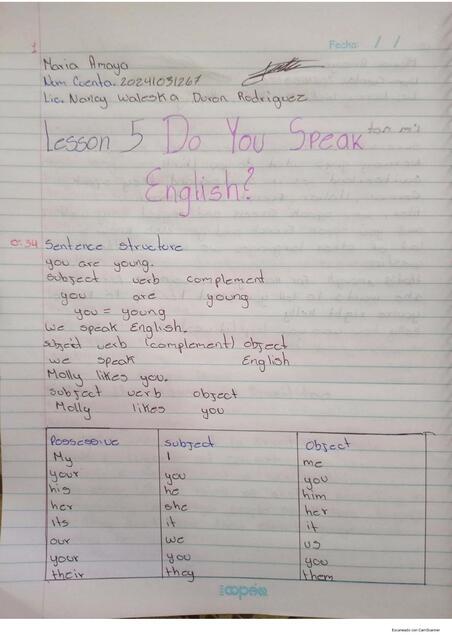 1
Fecha: / /
Maria Amaya
Num Cuenta. 20241031267
Lic. Nancy Waleska Duron Rodriguez
Lesson 5 Do You Speak
English?
0:34 Sentence structure
you are young.
subject verb complement
you are young
you = young
we speak English.
subject verb (complement) object
we speak English
Molly likes you.
subject verb object
Molly likes you
Possessive Subject Object
My I me
your you you
his he him
her she her
its it it
our we us
your you you
their they them
copán
Escaneado con CamScanner